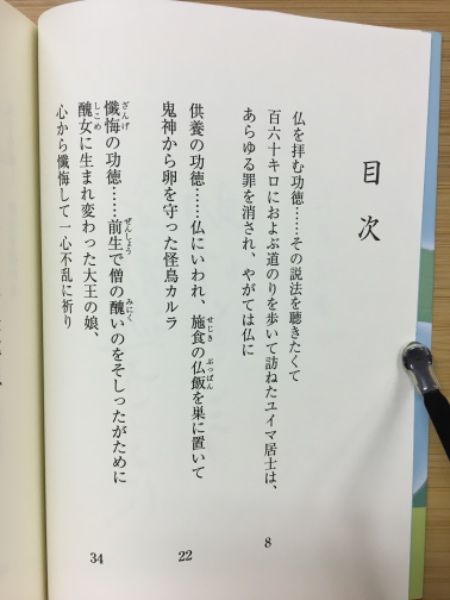 目次
仏を拝む功徳……その説法を聴きたくて
百六十キロにおよぶ道のりを歩いて訪ねたユイマ居士は、
あらゆる罪を消され、やがては仏に
8
供養の功徳……仏にいわれ、施食の仏飯を巣に置いて
せじき
ぶっぱん
鬼神から卵を守った怪鳥カルラ
22
懺悔の功徳……前生で僧の醜いのをそしったがために
ざんげ
ぜんしょう
みにく
醜女に生まれ変わった大王の娘、
しこめ
心から懺悔して一心不乱に祈り
34